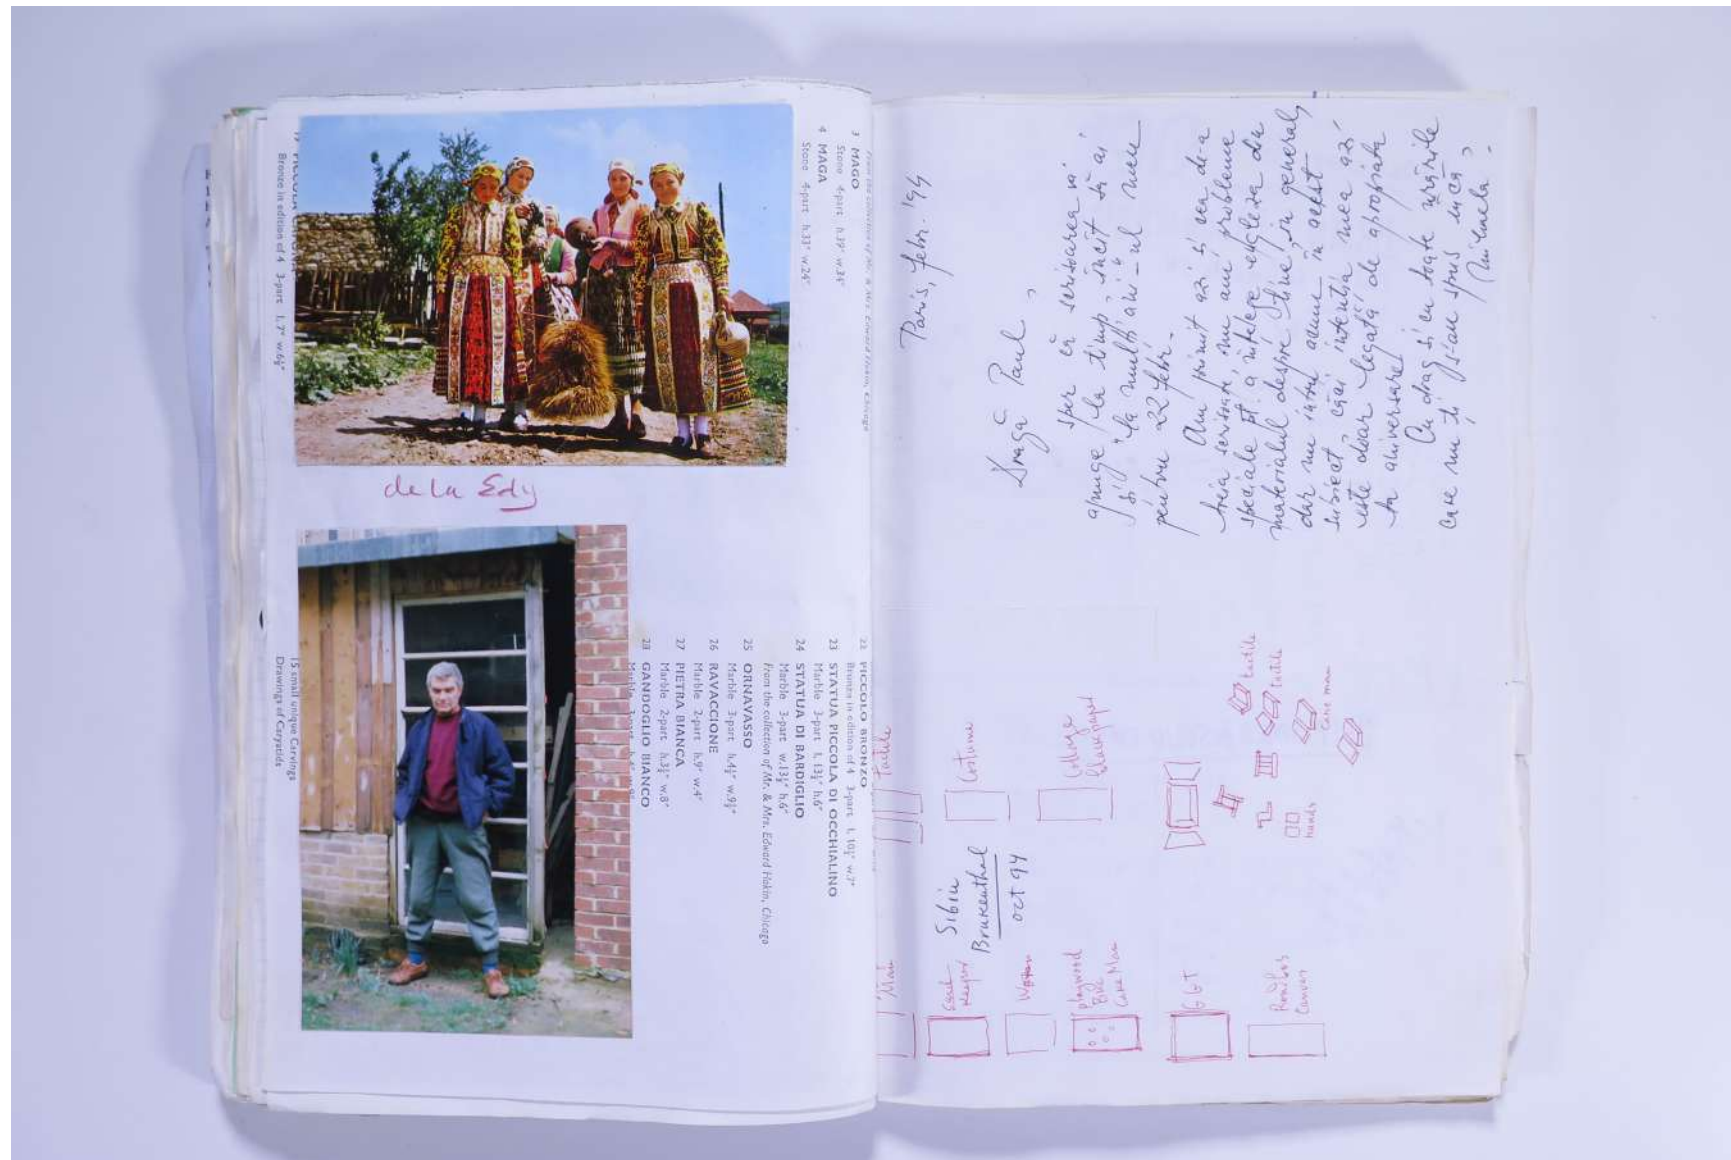 3 MAGO
Stone 4-part h.39" w.34"
4 MAGA
Stone 4-part h.33" w.24"
Bronze in edition of 4 3-part l.7" w.6½"
de la Edy
22 PICCOLO BRONZO
Bronze in edition of 4 3-part l.10½" w.7"
23 STATUA PICCOLA DI OCCHIALINO
Marble 3-part l.13½" h.6"
24 STATUA DI BARDIGLIO
Marble 3-part w.13½" h.6"
From the collection of Mr. & Mrs. Edward Hokin, Chicago
25 ORNAVASSO
Marble 3-part h.4½" w.9½"
26 RAVACCIONE
Marble 2-part h.9" w.4"
27 PIETRA BIANCA
Marble 2-part h.3½" w.8"
28 GANDOGLIO BIANCO
15 small unique Carvings
Drawings of Caryatids
Paris, febr. '94
Dragă Paul,
sper că scrisoarea va
ajunge la timp încît să ai
și "la mulți ani"-ul meu
pentru 22 febr.
Am primit azi și cea de-a
treia scrisoare, nu am probleme
speciale pt. a înțelege engleza din
materialul despre tine, în general,
dar nu intru acum în acest
subiect, căci intenția mea azi
este doar legată de apropiata
ta aniversare!
Cu drag și cu toate urările
care nu ți s-au spus încă,
Mihaela.
Tactile
Costume
Collage
tactile
tactile
cave man
hands
Sibiu
Brukenthal
oct 94
Man
playwood
Cave Man
GGT
Rombos
Canvas